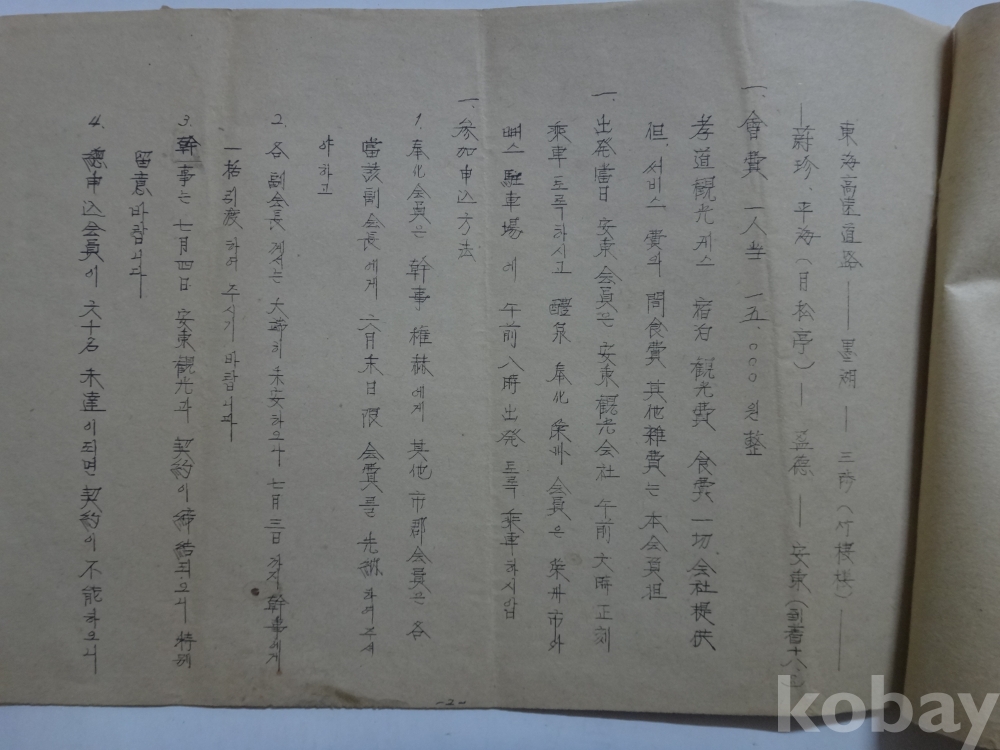 東海高速道路 ── 墨湖 ─ 三陟(竹樓楼) ──
─ 蔚珍. 平海(月松亭) ─ 盈德 ── 安東(到着十八.)
一. 會費 一人当 一五.000 원整
孝道観光게스 宿泊 観光費 食費 一切. 会社提供
但. 서비스 費와 間食費 其他雜費는 本会員但
一. 出発當日 安東会員은 安東観光会社 午前六時正刻
乘車토록하시고 醴泉 奉化 榮州 会員은 榮州市外
뻐스 駐車場에 午前八時出発토록 乘車하시압
一. 参加申込方法
1. 奉化会員은 幹事 権赫에게 其他市郡会員은 各
當該副会長에게 六月末日限 会費를 先 하여주셔
야하고
2. 各副会長께서는 大端히 未安하오나 七月三日까지 幹事에게
一括引渡하여 주시기 바랍니다
3. 幹事는 七月四日 安東観光과 契約이 締結되오니 特別
留意바랍니다
4. 總申込会員이 六十名未達이되면 契約이 不能하오니
-2-
kobay